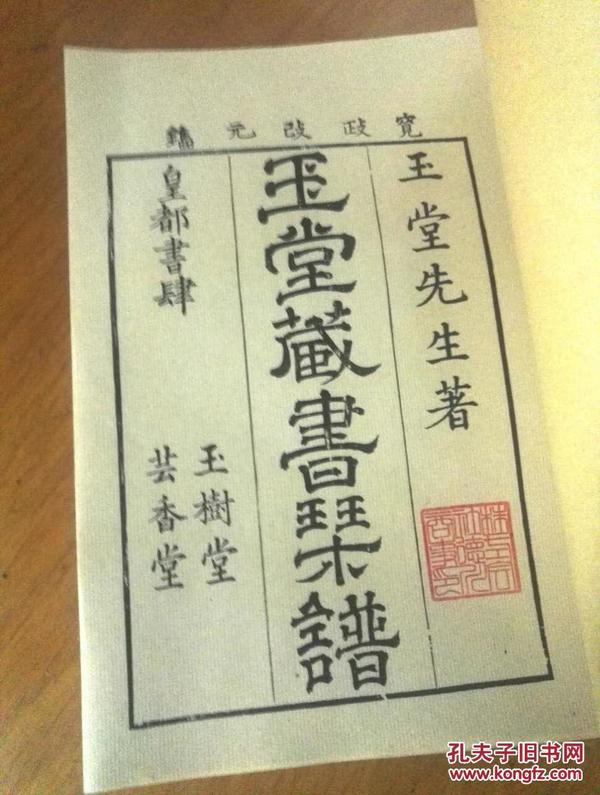 寬政改元鐫
玉堂先生著
玉堂藏書琹譜
皇都書肆
玉樹堂
芸香堂
孔夫子旧书网
www.kongfz.com